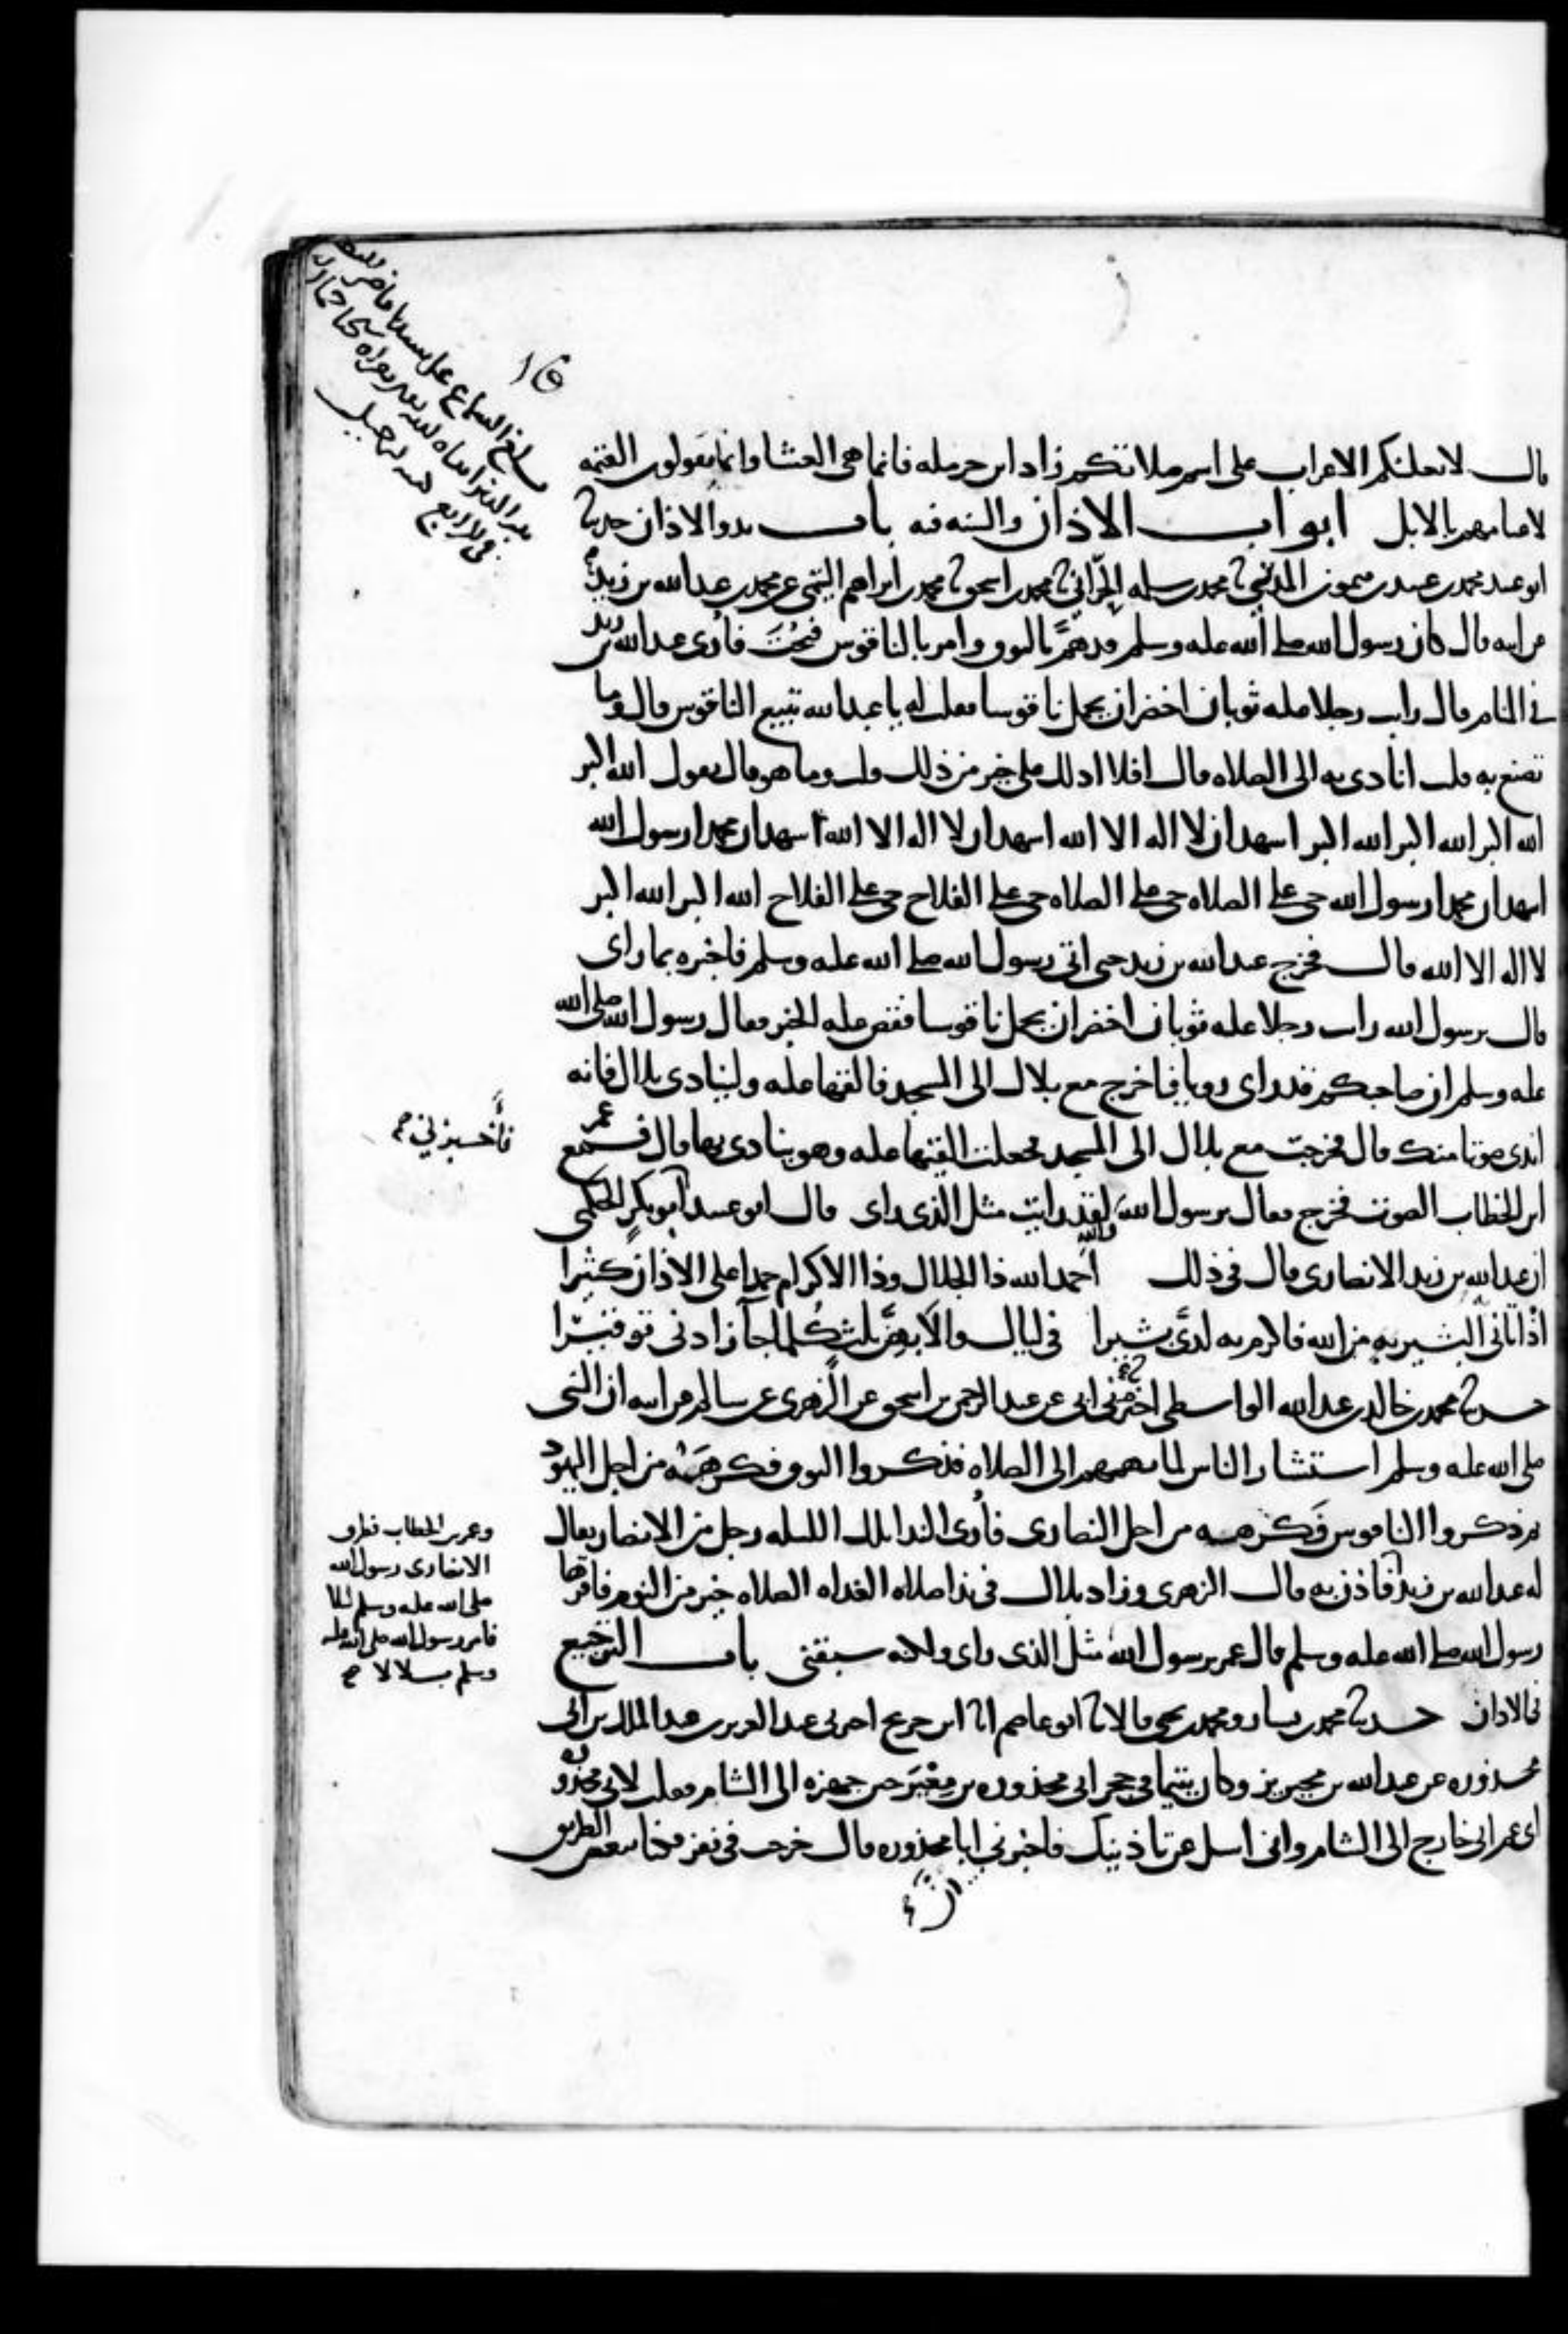 قال لا تغلبنكم الاعراب على اسم صلاتكم زاد ابن حرمله فانما هي العشا وانما يقولون العتمه
لاعتامهم بالابل ابواب الاذان والسنه فيه باب بدو الاذان حدثنا
ابو عبيد محمد بن عبيد بن ميمون المدني ثنا محمد بن سلمه الحرّاني ثنا محمد بن اسحق ثنا محمد بن ابراهيم التيمي عن محمد بن عبد الله بن زيد
عن ابيه قال كان رسول الله صلى الله عليه وسلم قد همّ بالبوق وامر بالناقوس فنُحِتَ فأُري عبد الله بن زيد
في المنام قال رايت رجلا عليه ثوبان اخضران يحمل ناقوسا فقلت له يا عبد الله تبيع الناقوس قال وما
تصنع به قلت انادي به الى الصلاه قال افلا ادلك على خير من ذلك قلت وما هو قال تقول الله اكبر
الله اكبر الله اكبر الله اكبر اشهد ان لا اله الا الله اشهد ان لا اله الا الله اشهد ان محمدا رسول الله
اشهد ان محمدا رسول الله حي على الصلاه حي على الصلاه حي على الفلاح حي على الفلاح الله اكبر الله اكبر
لا اله الا الله قال فخرج عبد الله بن زيد حتى اتى رسول الله صلى الله عليه وسلم فاخبره بما راى
قال يرسول الله رايت رجلا عليه ثوبان اخضران يحمل ناقوسا فقص عليه الخبر فقال رسول الله صلى الله
عليه وسلم ان صاحبكم قد راى رويا فاخرج مع بلال الى المسجد فالقها عليه ولينادي بلال فانه
اندى صوتا منك قال فخرجت مع بلال الى المسجد فجعلت القيها عليه وهو ينادي بها قال فسمع عمر
ابن الخطاب الصوت فخرج فقال يرسول الله والله لقد رايت مثل الذي راى قال ابو عبيد فأخبرني ابو بكرٍ الحكمي
ان عبد الله بن زيد الانصاري قال في ذلك احمد الله ذا الجلال وذا الاكرام حمدا على الاذان كثيرا
اذ اتاني البشير به من الله فاكرم به لديَّ بشيرا في ليالٍ والا بهنّ ثلث كلما جآ زادني توقيرا
حدثنا محمد بن خالد بن عبد الله الواسطي ثنا ابي عن عبد الرحمن بن اسحق عن الزهري عن سالم عن ابيه ان النبي
صلى الله عليه وسلم استشار الناس لما يهمهم الى الصلاه فذكروا البوق فكرهه من اجل اليهود
ثم ذكروا الناقوس فكرهه من اجل النصارى فأُري الندا تلك الليله رجل من الانصار يقال
له عبد الله بن زيد وعمر بن الخطاب فطرق
الانصاري رسول الله
صلى الله عليه وسلم ليلا
فامر رسول الله صلى الله عليه
وسلم بلالا
فاذن به قال الزهري وزاد بلال في ندا صلاه الغداه الصلاه خير من النوم فاقرها
رسول الله صلى الله عليه وسلم قال عمر يرسول الله مثل الذي راى ولكنه سبقني باب الترجيع
في الاذان حدثنا محمد بن بشار ومحمد بن يحيى قالا ثنا ابو عاصم انا ابن جريج اخبرني عبد العزيز بن عبد الملك بن ابي
محذوره عن عبد الله بن محيريز وكان يتيما في حجر ابي محذوره بن مِعْيَر حين جهزه الى الشام فقلت لابي محذوره
اي عم اني خارج الى الشام واني اسل عن تاذينك فاخبرني ان ابا محذوره قال خرجت في نفر فكنا ببعض الطريق